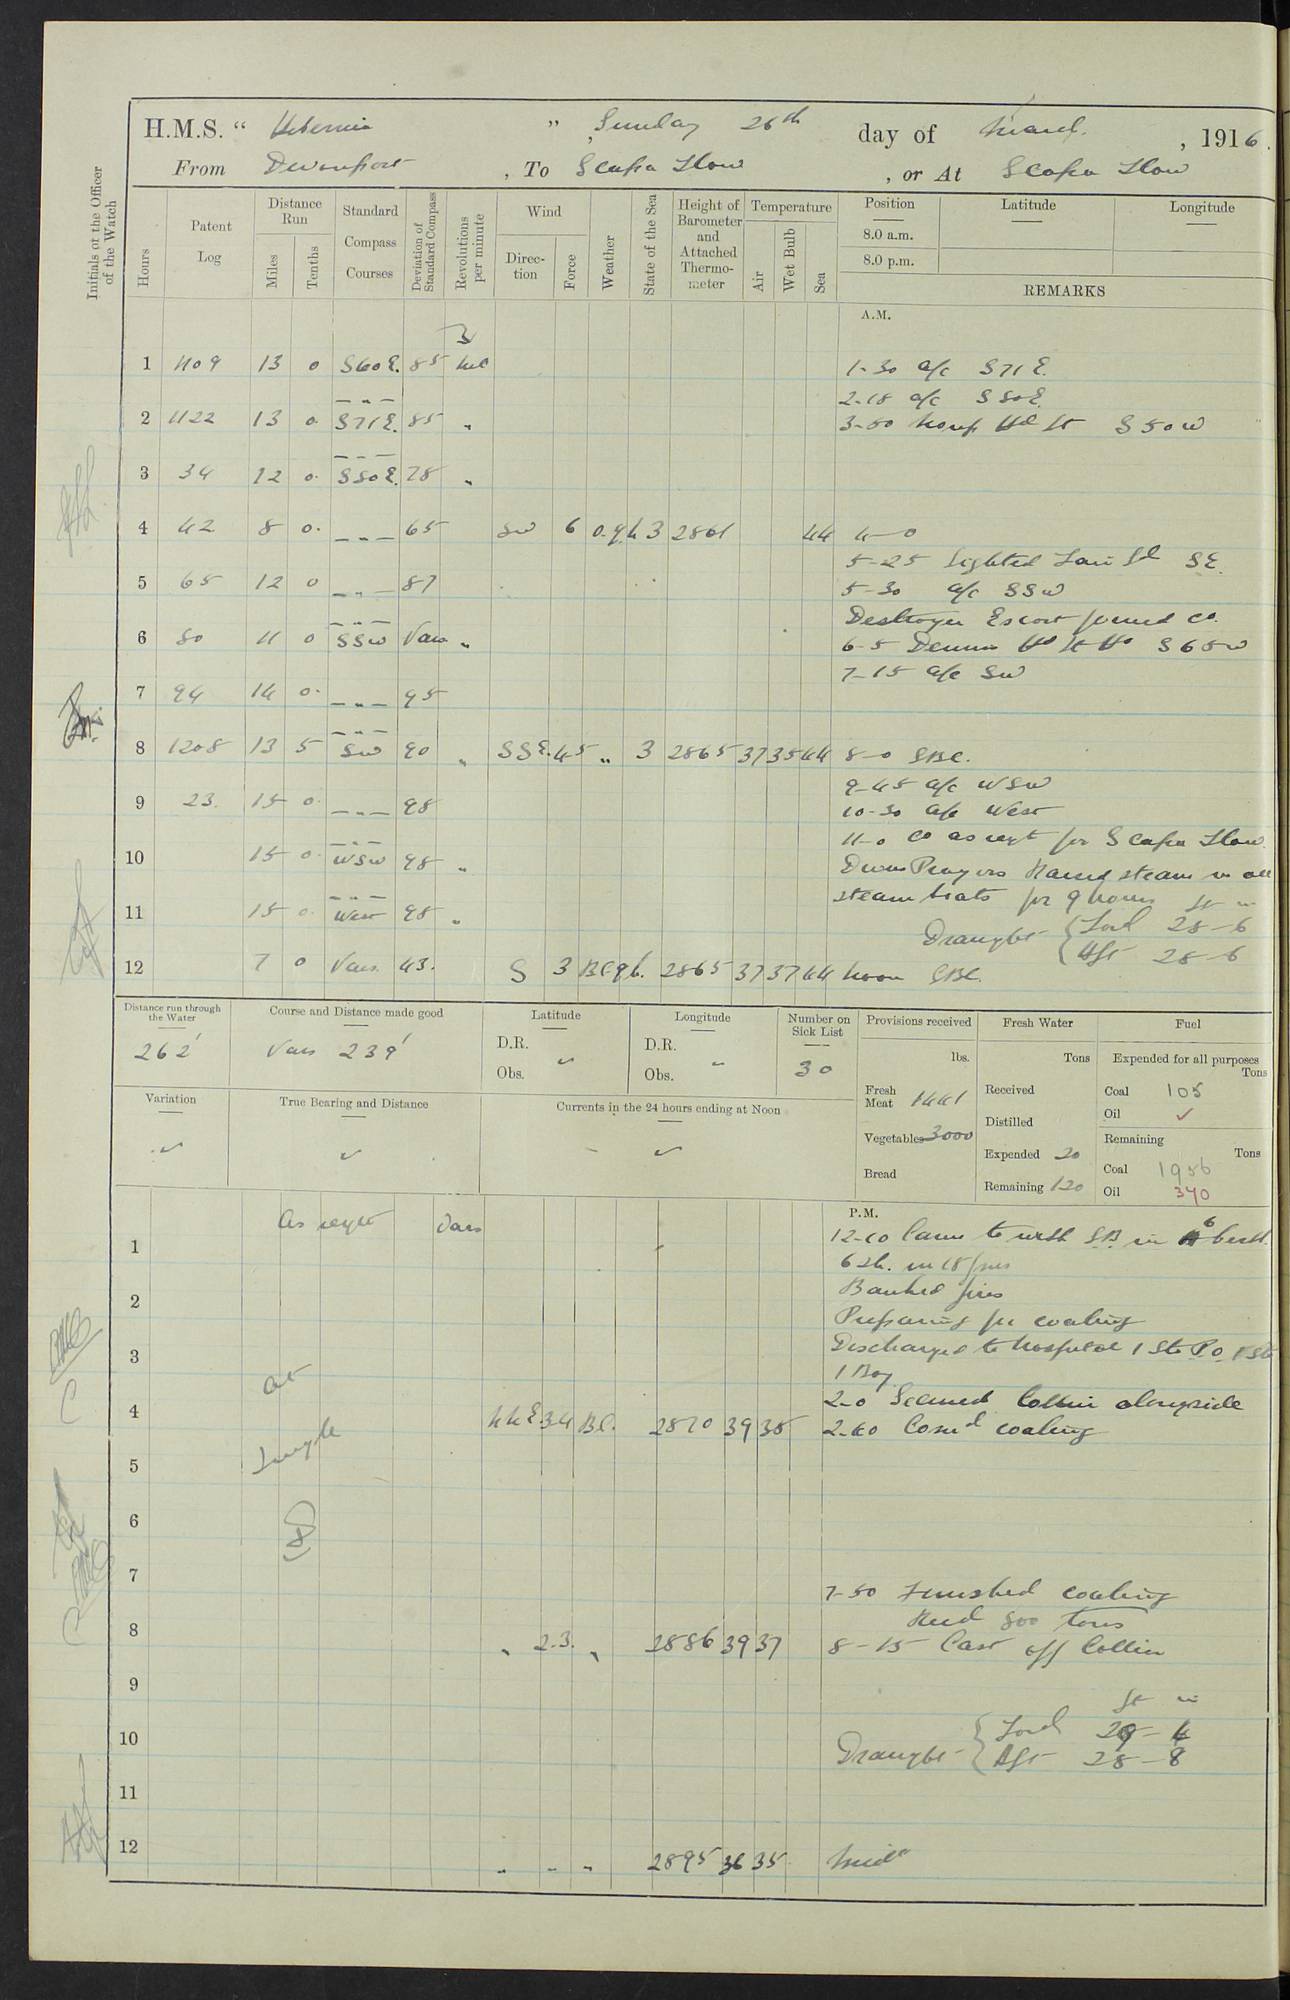 H.M.S. “ Hibernia ” , Sunday 26th day of March , 1916.
From Devonport , To Scapa Flow , or At Scapa Flow
Initials of the Officer of the Watch
Hours
Patent Log
Distance Run
Miles
Tenths
Standard Compass Courses
Deviation of Standard Compass
Revolutions per minute
Wind
Direction
Force
Weather
State of the Sea
Height of Barometer and Attached Thermometer
Temperature
Air
Wet Bulb
Sea
Position
Latitude
Longitude
8.0 a.m.
8.0 p.m.
REMARKS
A.M.
1 1109 13 0 S60E. 85
1-30 a/c S71E.
2-18 a/c S80E.
2 1122 13 0 S71E. 85 "
3-50 Noup Hd Lt S50W
3 34 12 0 S80E. 78 "
4 42 8 0 — " — 65 SW 6 o.q.h 3 2861 44 4-0
5-25 Sighted Fair Isd SE.
5 65 12 0 — " — 87
5-30 a/c SSW
Destroyer Escort joined co.
6 80 11 0 SSW Vars "
6-5 Dennis Hd Lt Ho S65W
7-15 a/c SW
7 94 14 0 — " — 95
8 1208 13 5 SW 90 " SSE. 4.5 " 3 2865 37 35 44 8-0 SBC.
9-45 a/c WSW
9 23. 15 0 — " — 98
10-30 a/c West
11-0 Co as reqt for Scapa Flow.
10 15 0 WSW 98 "
Divns Prayers Raised steam in all
steam boats for 9 hours ft in
11 15 0 West 98 "
Draught { Ford 28-6
Aft 28-6
12 7 0 Vars. 43. S 3 BCqh. 2865 37 37 44 Noon SBC.
Distance run through the Water
262'
Course and Distance made good
Vars 239'
Latitude
D.R.
Obs.
Longitude
D.R.
Obs.
Number on Sick List
30
Provisions received
lbs.
Fresh Meat 1441
Vegetables 3000
Bread
Fresh Water
Tons
Received
Distilled
Expended 20
Remaining 120
Fuel
Expended for all purposes
Tons
Coal 105
Oil ✓
Remaining
Tons
Coal 1956
Oil 340
Variation
✓
True Bearing and Distance
✓
Currents in the 24 hours ending at Noon
✓
P.M.
As reqte Vars
12-10 Came to with SB in 6 berth.
1
6 sh. in 18 fms
2
Banked fires
Preparing for coaling
3
Discharged to hospital 1 Sto P.O.
1 Boy
at
2-0 Secured Collier alongside
4 NNE. 3.4 BC. 2870 39 38 2-40 Comd coaling
Single
5
6
7
7-50 Finished coaling
Recd 800 tons
8 " 2.3. " 2886 39 37 8-15 Cast off Collier
9
ft in
10
Draught { Ford 29-4
Aft 28-8
11
12 " " " 2895 36 35 Midt